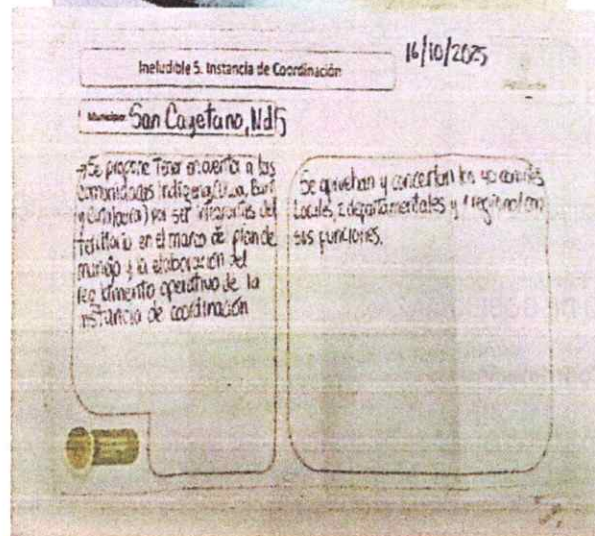 16/10/2025
Ineludible 5. Instancia de Coordinación
Municipio: San Cayetano, NdS
→Se propone Tener en cuenta a las
comunidades indígena, (Uwa, Barí
y ) por ser integrantes del
territorio en el marco de plan de
manejo y la elaboración del
reglamento operativo de la
instancia de coordinación
Se aprueban y concertan los 40 comités
Locales, 2 departamentales y 1 regional con
sus funciones.